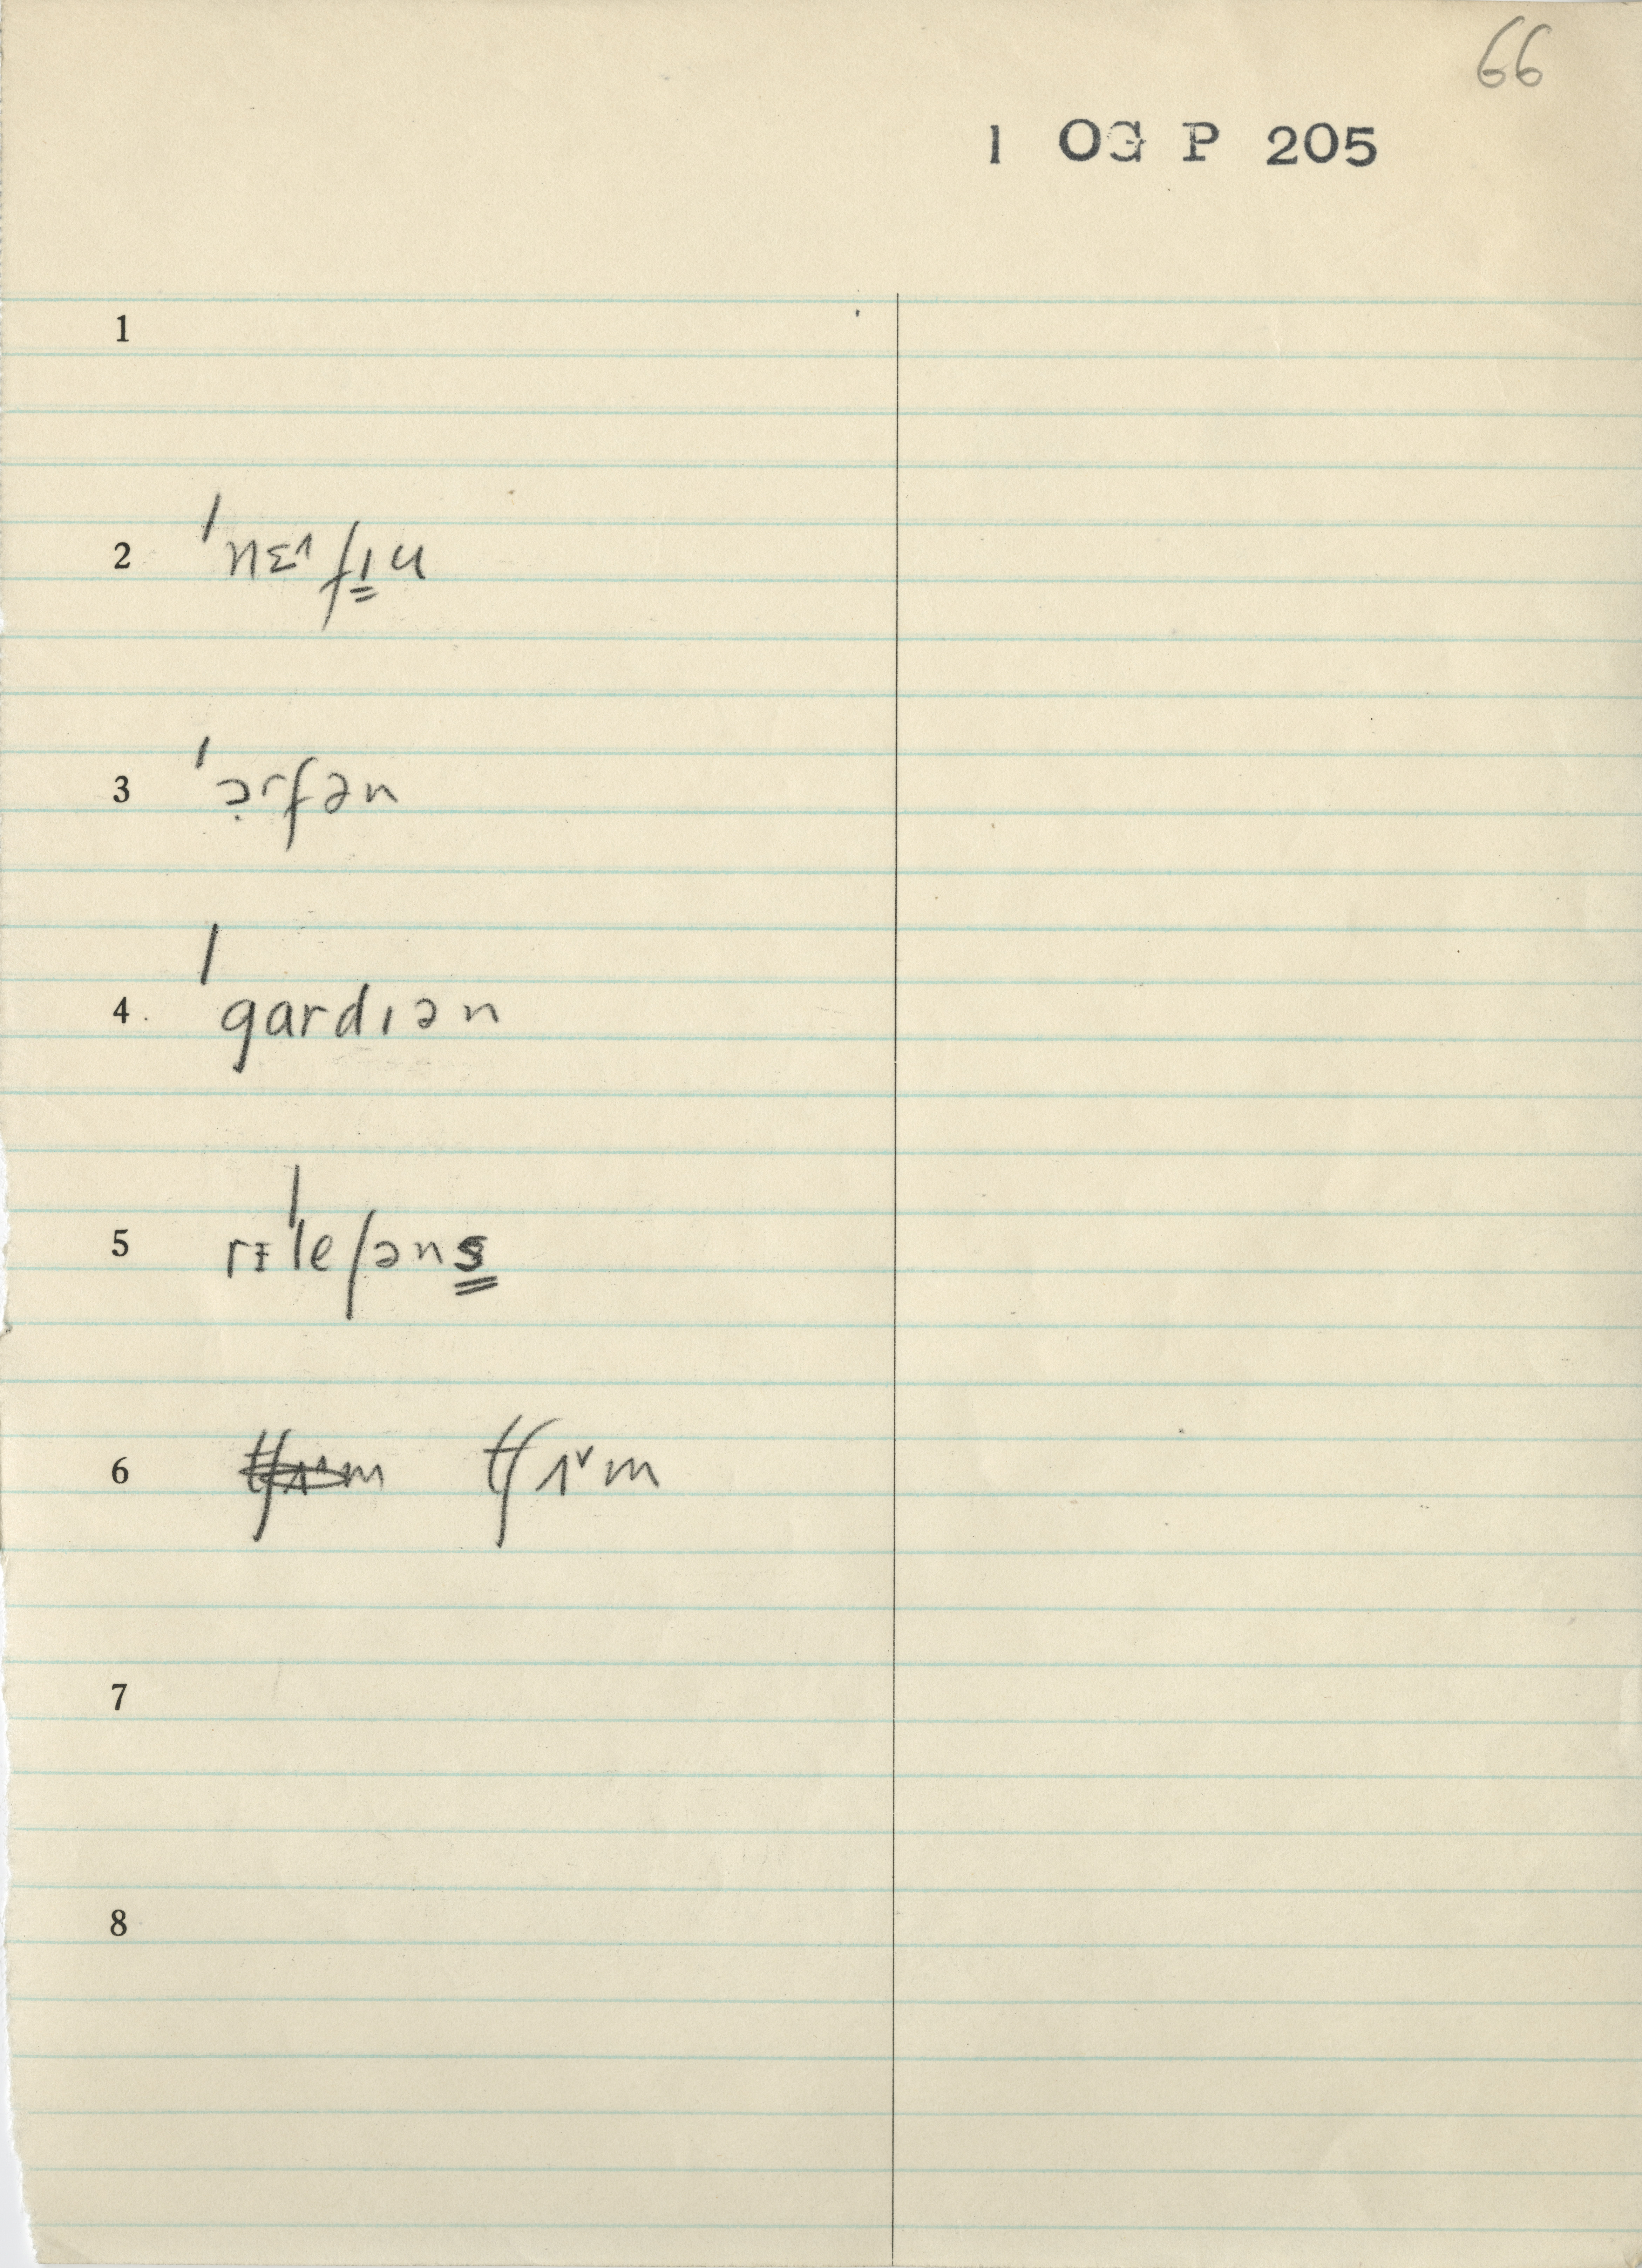 66
1 OG P 205
1
2 ˈnɛ˄fɪ̳u
3 ˈɔ̣rfən
4 ˈgardɪən
5 rɪˈleʃəns̳
6 tʃʌ˅m
7
8